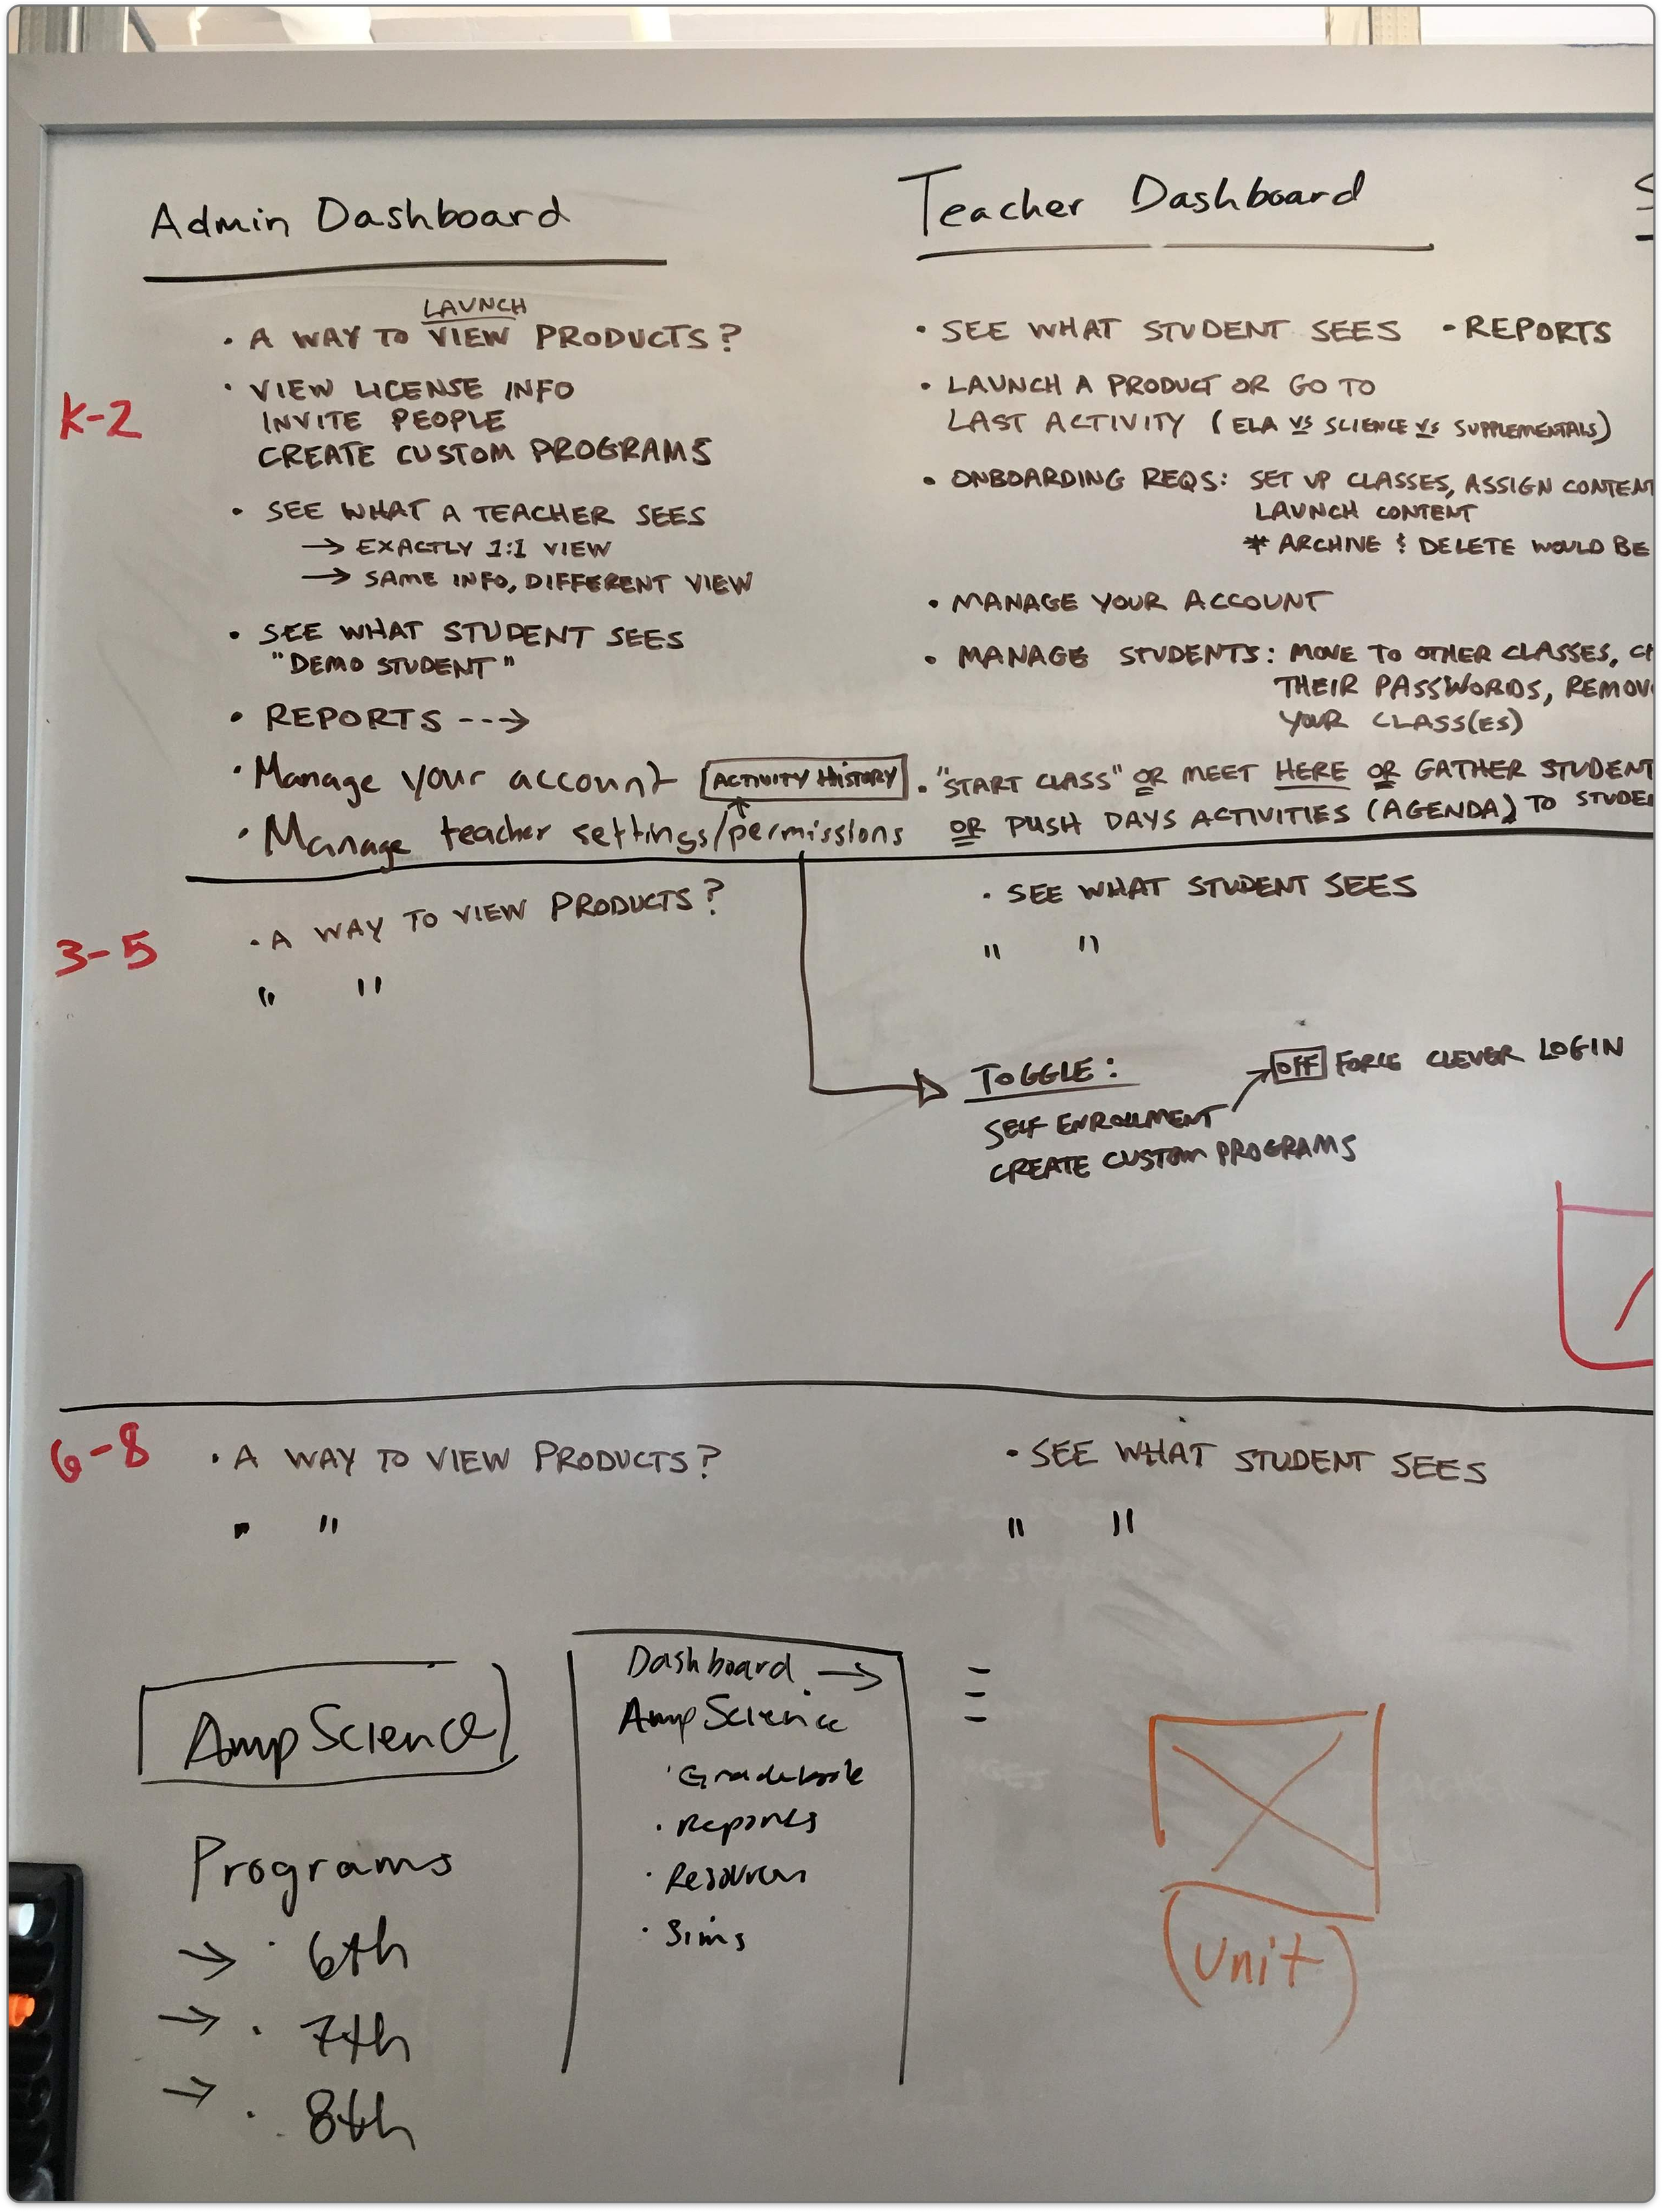 Admin Dashboard
LAUNCH
• A WAY TO VIEW PRODUCTS?
• VIEW LICENSE INFO
INVITE PEOPLE
CREATE CUSTOM PROGRAMS
• SEE WHAT A TEACHER SEES
→ EXACTLY 1:1 VIEW
→ SAME INFO, DIFFERENT VIEW
• SEE WHAT STUDENT SEES
"DEMO STUDENT"
• REPORTS --->
• Manage your account
ACTIVITY HISTORY
• Manage teacher settings/permissions
Teacher Dashboard
• SEE WHAT STUDENT SEES • REPORTS
• LAUNCH A PRODUCT OR GO TO
LAST ACTIVITY (ELA VS SCIENCE VS SUPPLEMENTALS)
• ONBOARDING REQS: SET UP CLASSES, ASSIGN CONTENT
LAUNCH CONTENT
* ARCHIVE & DELETE WOULD BE
• MANAGE YOUR ACCOUNT
• MANAGE STUDENTS: MOVE TO OTHER CLASSES,
THEIR PASSWORDS, REMOV
YOUR CLASS(ES)
• "START CLASS" OR MEET HERE OR GATHER STUDENT
OR PUSH DAYS ACTIVITIES (AGENDA) TO STUDE
K-2
3-5
• A WAY TO VIEW PRODUCTS?
" "
• SEE WHAT STUDENT SEES
" "
TOGGLE:
SELF ENROLLMENT
CREATE CUSTOM PROGRAMS
OFF FORCE CLEVER LOGIN
6-8
• A WAY TO VIEW PRODUCTS?
" "
• SEE WHAT STUDENT SEES
" "
Amp Science
Programs
→ • 6th
→ • 7th
→ • 8th
Dashboard →
Amp Science
• Gradebook
• Reports
• Resources
• Sims
(Unit)